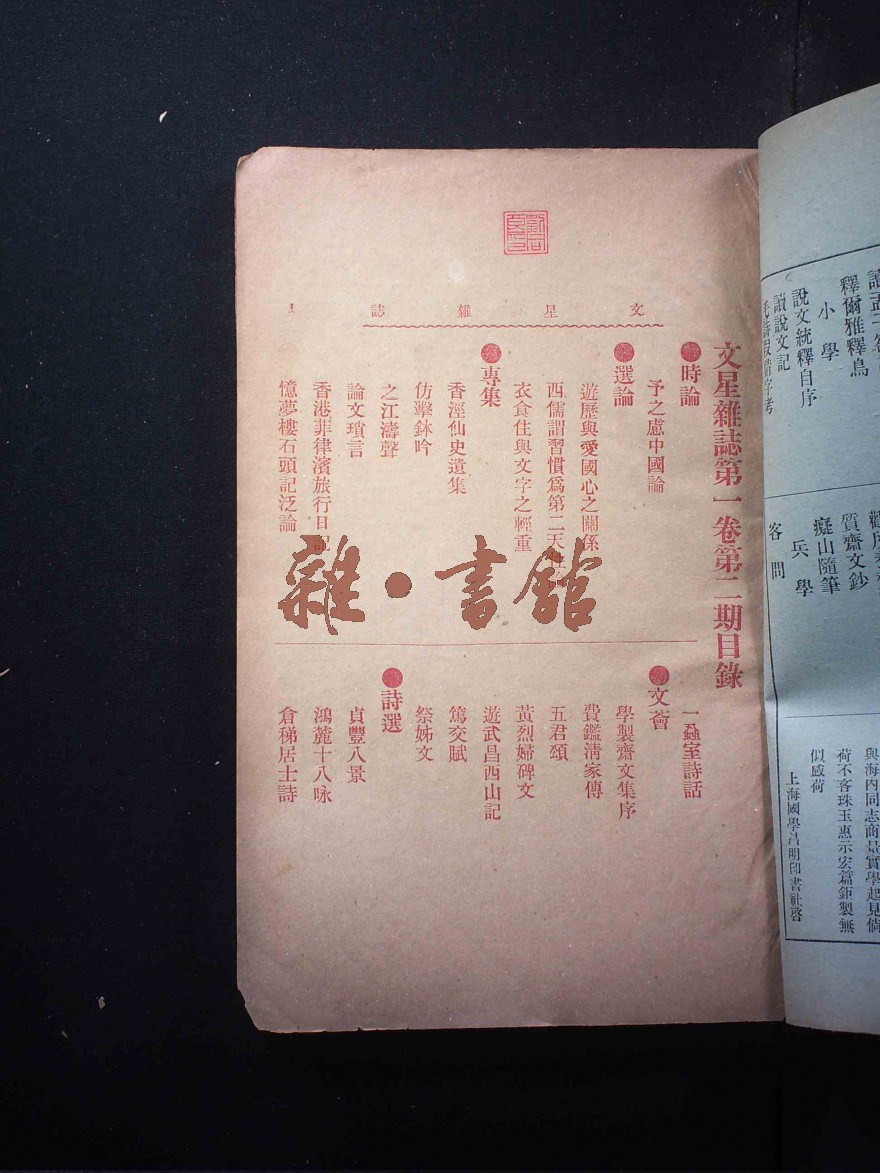 文星雜誌第一卷第二期目錄
文星雜誌
1
●時論
予之慮中國論
●選論
遊歷與愛國心之關係
西儒謂習慣爲第二天
衣食住與文字之輕重
●專集
香涇仙史遺集
仿擊鉢吟
之江濤聲
論文瑣言
香港菲律濱旅行日記
憶夢樓石頭記泛論
一蝨室詩話
●文薈
學製齋文集序
費鑑淸家傳
五君頌
黃烈婦碑文
遊武昌西山記
篤交賦
祭姊文
●詩選
貞豐八景
鴻麓十八咏
倉稊居士詩
雜·書舘
釋爾雅釋鳥
小學
說文統釋自序
讀說文記
質齋文鈔
癡山隨筆
兵學
客問
與海內同志商量實學起見倘
荷不吝珠玉惠示宏篇鉅製無
似感荷
上海國學昌明印書社啓